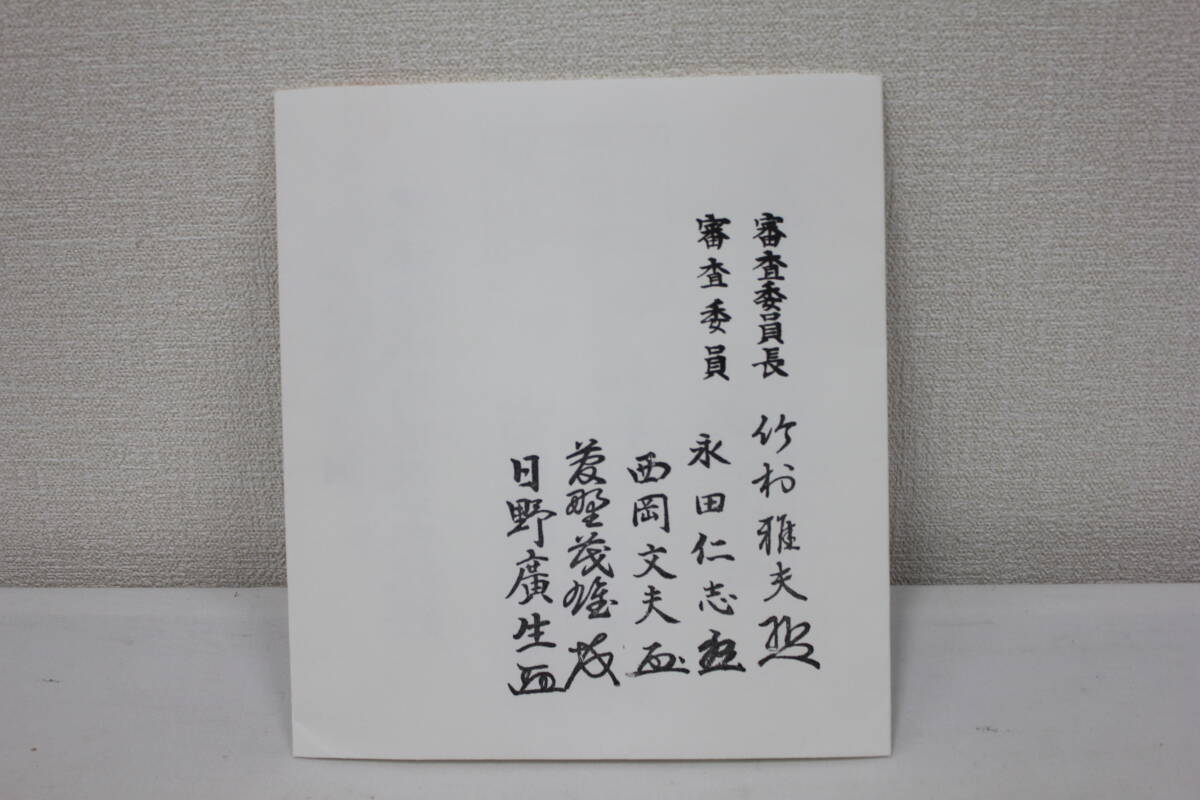 審査委員長 竹村雅夫
審査委員 永田仁志
西岡文夫
菅野茂雄
日野廣生